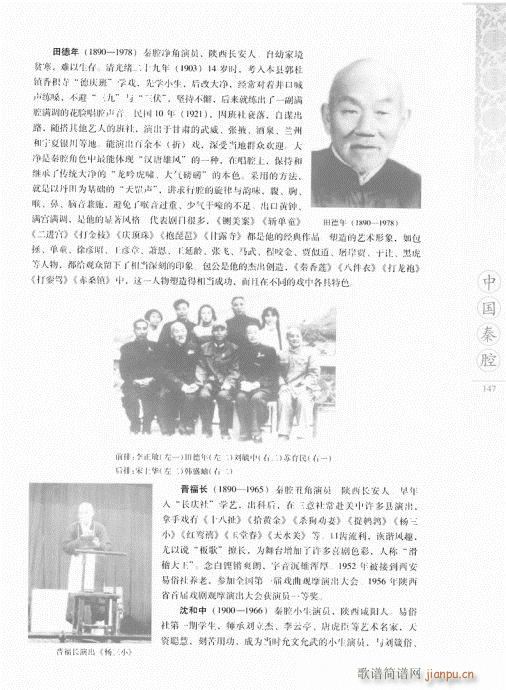 田德年（1890—1978）秦腔净角演员，陕西长安人。自幼家境
贫寒，难以生存。清光绪二十九年（1903）14岁时，考入本县郭杜
镇香积寺“德庆班”学戏，先学小生，后改大净，经常对着井口喊
声练嗓，不避“三九”与“三伏”，坚持不懈，后来就练出了一副满
腔满调的花脸唱腔声音。民国10年（1921），因班社衰落，自谋出
路，随搭其他艺人的班社，演出于甘肃的武威、张掖、酒泉、兰州
和宁夏银川等地。能演出百余本（折）戏，深受当地群众欢迎。大
净是秦腔角色中最能体现“汉唐雄风”的一种，在唱腔上，保持和
继承了传统大净的“龙吟虎啸、大气磅礴”的本色。采用的方法，
就是以丹田为基础的“天罡声”，讲求行腔的旋律与韵味，腹、胸、
喉、鼻、脑音兼施，避免了喉音过重、少气干哑的不足。出口黄钟、
满宫满调，是他的显著风格。代表剧目很多，《铡美案》《斩单童》
《二进宫》《打金枝》《庆顶珠》《抱琵琶》《甘露寺》都是他的经典作品。塑造的艺术形象，如包
拯、单童、徐彦昭、王彦章、萧恩、王延龄、张飞、马武、程咬金、贾似道、屠岸贾、于让、黑虎
等人物，都给观众留下了相当深刻的印象。包公是他的杰出创造，《秦香莲》《八件衣》《打龙袍》
《打銮驾》《赤桑镇》中，这一人物塑造得相当成功，而且在不同的戏中各具特色。
田德年（1890—1978）
中国秦腔
147
前排：李正敏（左一）田德年（左二）刘毓中（右二）苏育民（右一）
后排：宋上华（左二）韩盛岫（右二）
晋福长（1890—1965）秦腔丑角演员，陕西长安人。早年
入“长庆社”学艺，出科后，在三意社常赴关中许多县演出，
拿手戏有《十八扯》《拾黄金》《杀狗劝妻》《提鹌鹑》《杨三
小》《红鸾禧》《玉堂春》《天水关》等。口齿流利，诙谐风趣，
尤以说“板歌”擅长，为舞台增加了许多喜剧色彩，人称“滑
稽大王”。念白铿锵爽朗，字音沉雄浑厚。1952年被接到西安
易俗社养老，参加全国第一届戏曲观摩演出大会。1956年陕西
省首届戏剧观摩演出大会获演员一等奖。
沈和中（1900—1966）秦腔小生演员，陕西咸阳人。易俗
社第一期学生，师承刘立杰、李云亭、唐虎臣等艺术名家，天
资聪慧，刻苦用功，成为当时允文允武的小生演员，与刘箴俗、
晋福长演出《杨三小》
歌谱简谱网
jianpu.cn